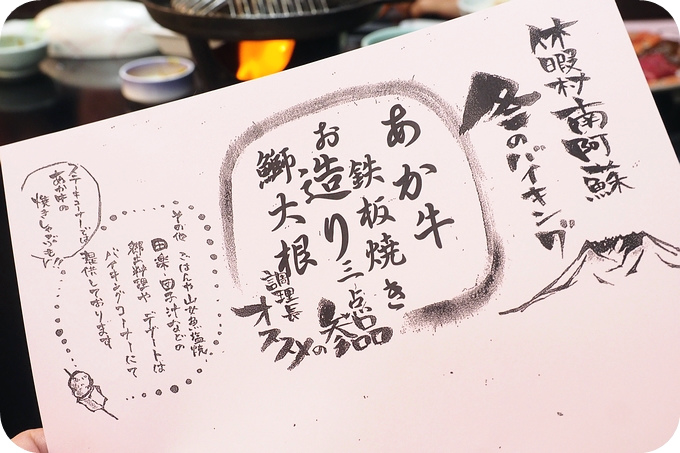 休暇村南阿蘇
冬のバイキング
あか牛
鉄板焼き
お造り三点
鰤大根
調理長
オススメの参品
その他 ごはんや山女魚塩焼
田楽、団子汁などの
郷土料理や デザートは
バイキングコーナーにて
提供しております
ステーキコーナーでは
あか牛の
焼きしゃぶも!!